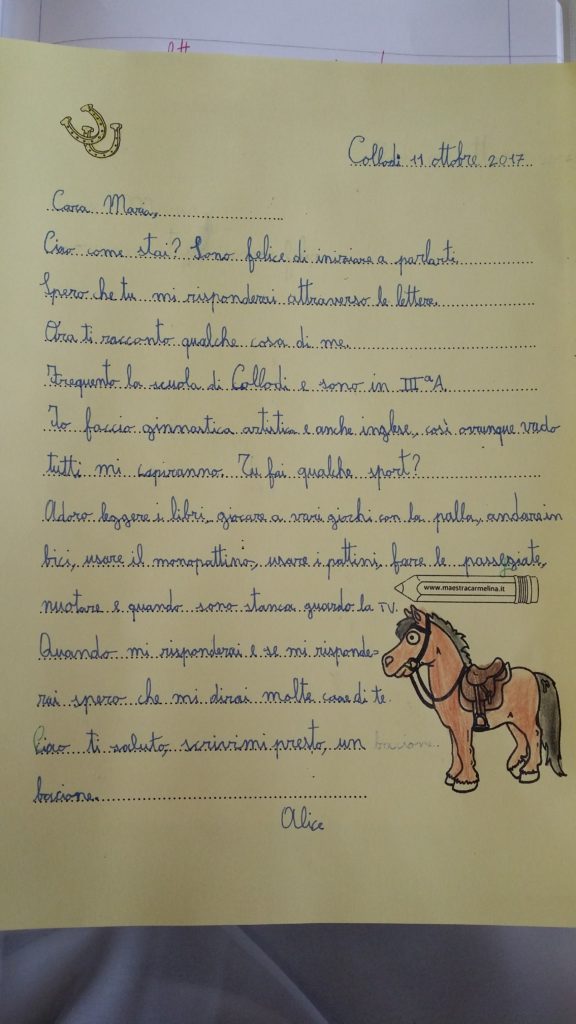 Collodi 11 ottobre 2017
Cara Maria,
Ciao come stai? Sono felice di iniziare a parlarti.
Spero che tu mi risponderai attraverso le lettere.
Ora ti racconto qualche cosa di me.
Frequento la scuola di Collodi e sono in IIIªA.
Io faccio ginnastica artistica e anche inglese, così ovunque vado
tutti mi capiranno. Tu fai qualche sport?
Adoro leggere i libri, giocare a vari giochi con la palla, andare in
bici, usare il monopattino, usare i pattini, fare le passeggiate,
www.maestracarmelina.it
nuotare e quando sono stanca guardo la TV.
Quando mi risponderai e se mi risponde=
rai spero che mi dirai molte cose di te.
Ciao ti saluto, scrivimi presto, un bacione.
bacione.
Alice